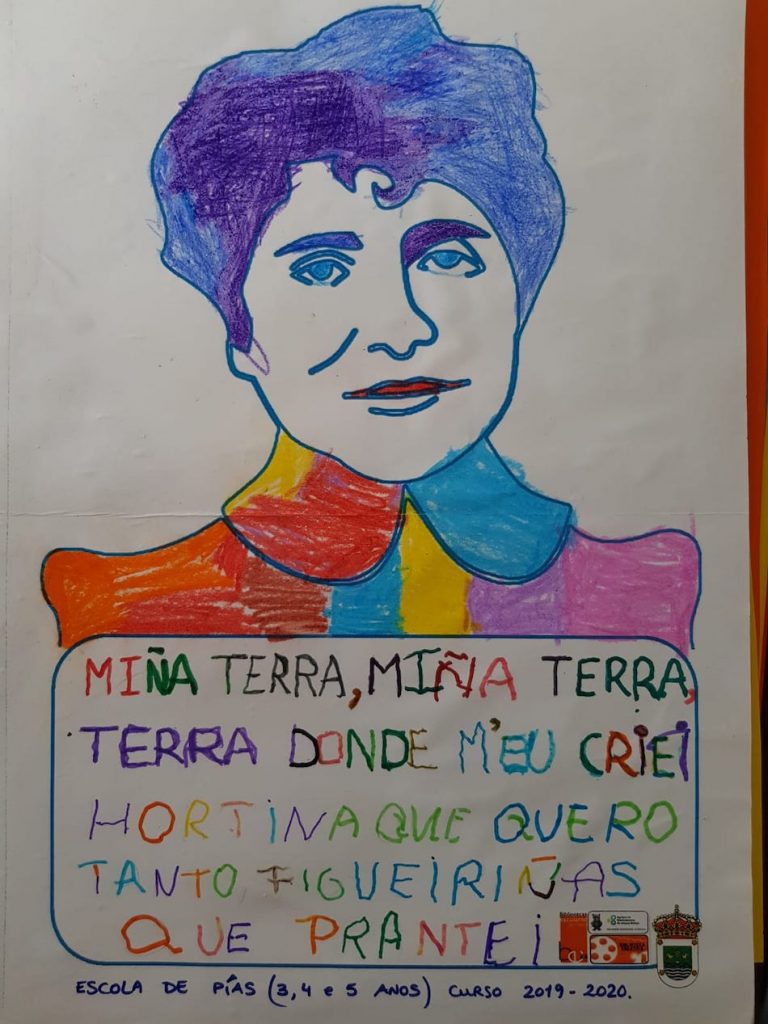 MIÑA TERRA, MIÑA TERRA,
TERRA DONDE M'EU CRIEI
HORTINA QUE QUERO
TANTO FIGUEIRIÑAS
QUE PRANTEI
ESCOLA DE PÍAS (3, 4 e 5 ANOS) CURSO 2019-2020.